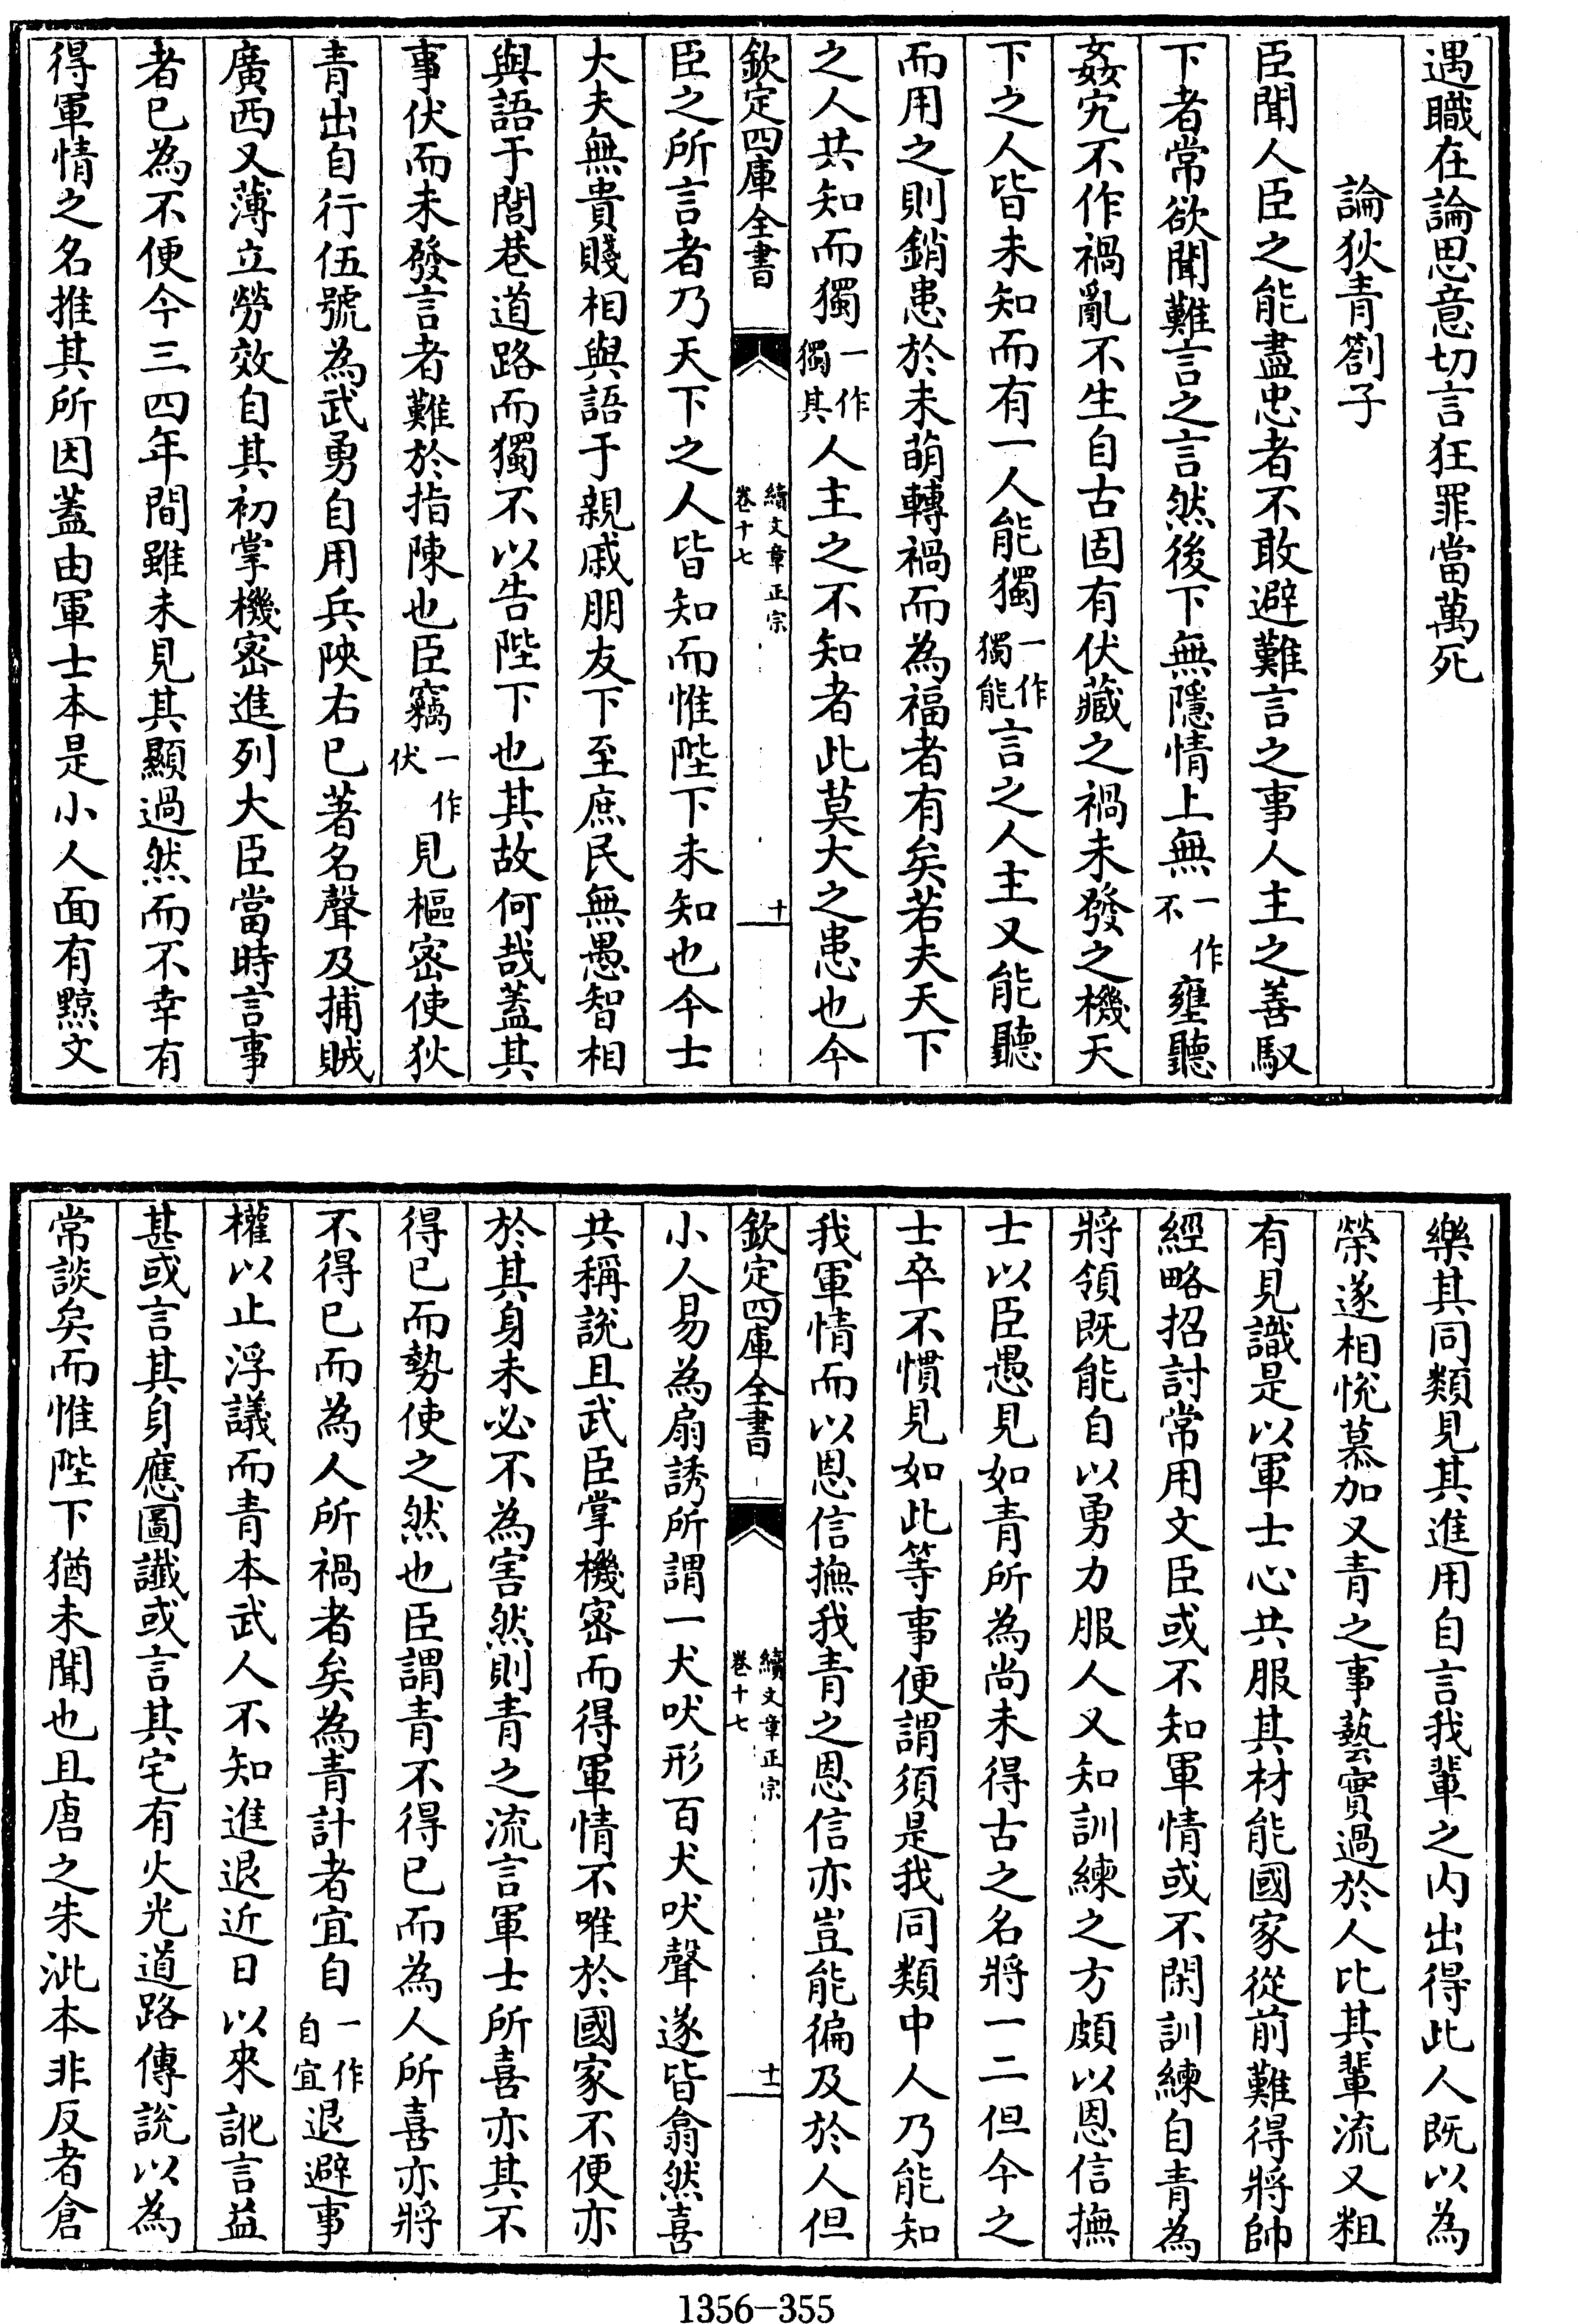 遇職在論思意切言狂罪當萬死
論狄青劄子
臣聞人臣之能盡忠者不敢避難言之事人主之善馭
下者常欲聞難言之言然後下無隱情上無一作不壅聽
姦宄不作禍亂不生自古固有伏藏之禍未發之機天
下之人皆未知而有一人能獨一作獨能言之人主又能聽
而用之則銷患於未萌轉禍而為福者有矣若夫天下
之人共知而獨一作獨其人主之不知者此莫大之患也今
欽定四庫全書 續文章正宗 卷十七 十
臣之所言者乃天下之人皆知而惟陛下未知也今士
大夫無貴賤相與語于親戚朋友下至庶民無愚智相
與語于閭巷道路而獨不以告陛下也其故何哉蓋其
事伏而未發言者難於指陳也臣竊一作伏見樞密使狄
青出自行伍號為武勇自用兵陝右已著名聲及捕賊
廣西又薄立勞效自其初掌機密進列大臣當時言事
者已為不便今三四年間雖未見其顯過然而不幸有
得軍情之名推其所因蓋由軍士本是小人面有黥文
樂其同類見其進用自言我輩之内出得此人既以為
榮遂相悅慕加又青之事藝實過於人比其輩流又粗
有見識是以軍士心共服其材能國家從前難得將帥
經略招討常用文臣或不知軍情或不閑訓練自青為
將領既能自以勇力服人又知訓練之方頗以恩信撫
士以臣愚見如青所為尚未得古之名將一二但今之
士卒不慣見如此等事便謂須是我同類中人乃能知
我軍情而以恩信撫我青之恩信亦豈能徧及於人但
欽定四庫全書 續文章正宗 卷十七 十一
小人易為扇誘所謂一犬吠形百犬吠聲遂皆翕然喜
共稱說且武臣掌機密而得軍情不唯於國家不便亦
於其身未必不為害然則青之流言軍士所喜亦其不
得已而勢使之然也臣謂青不得已而為人所喜亦將
不得已而為人所禍者矣為青計者宜自一作自宜退避事
權以止浮議而青本武人不知進退近日以來訛言益
甚或言其身應圖讖或言其宅有火光道路傳說以為
常談矣而惟陛下猶未聞也且唐之朱泚本非反者倉
1356-355